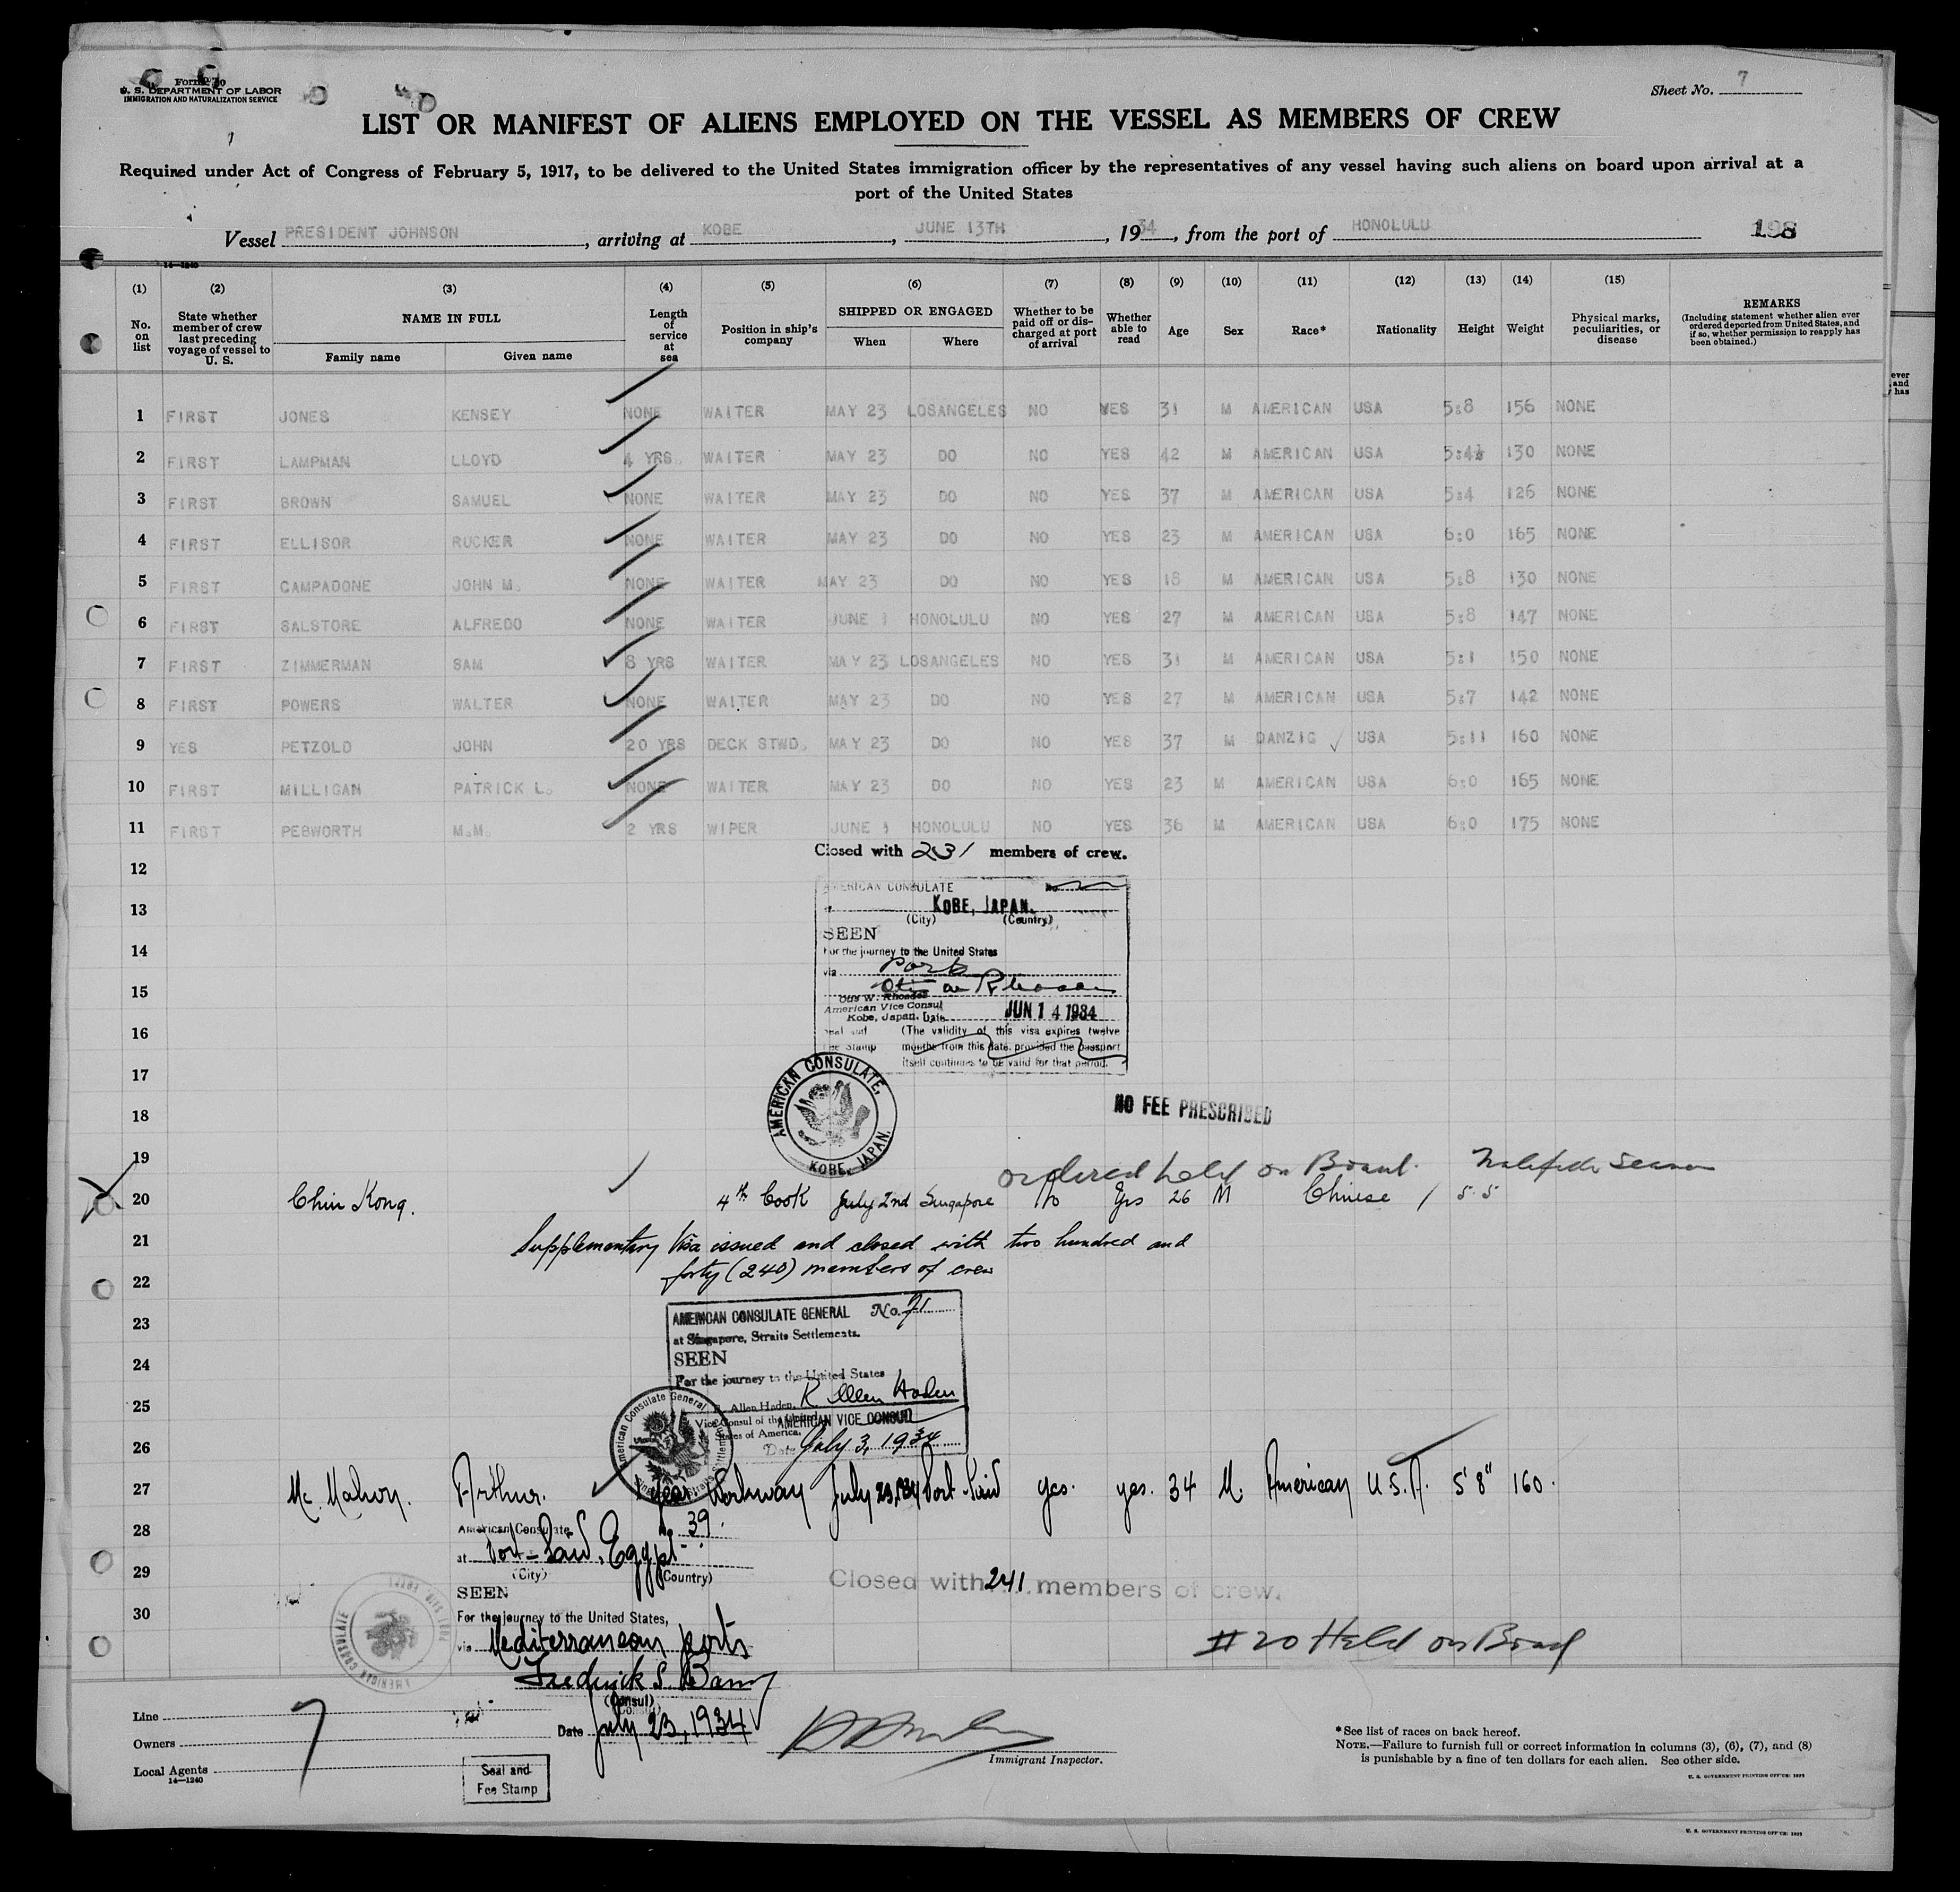 Form 710
U. S. DEPARTMENT OF LABOR
IMMIGRATION AND NATURALIZATION SERVICE
Sheet No. 7
LIST OR MANIFEST OF ALIENS EMPLOYED ON THE VESSEL AS MEMBERS OF CREW
Required under Act of Congress of February 5, 1917, to be delivered to the United States immigration officer by the representatives of any vessel having such aliens on board upon arrival at a
port of the United States
Vessel PRESIDENT JOHNSON, arriving at KOBE, JUNE 13TH, 1934, from the port of HONOLULU 198
14—1240
(1) (2) (3) (4) (5) (6) (7) (8) (9) (10) (11) (12) (13) (14) (15)
No. on list
State whether member of crew last preceding voyage of vessel to U. S.
NAME IN FULL
Family name Given name
Length of service at sea
Position in ship's company
SHIPPED OR ENGAGED
When Where
Whether to be paid off or discharged at port of arrival
Whether able to read
Age
Sex
Race*
Nationality
Height
Weight
Physical marks, peculiarities, or disease
REMARKS
(Including statement whether alien ever ordered deported from United States, and if so, whether permission to reapply has been obtained.)
1 FIRST JONES KENSEY NONE WAITER MAY 23 LOSANGELES NO YES 31 M AMERICAN USA 5:8 156 NONE
2 FIRST LAMPMAN LLOYD 4 YRS. WAITER MAY 23 DO NO YES 42 M AMERICAN USA 5:4½ 130 NONE
3 FIRST BROWN SAMUEL NONE WAITER MAY 23 DO NO YES 37 M AMERICAN USA 5:4 126 NONE
4 FIRST ELLISOR RUCKER NONE WAITER MAY 23 DO NO YES 23 M AMERICAN USA 6:0 165 NONE
5 FIRST CAMPADONE JOHN M. NONE WAITER MAY 23 DO NO YES 18 M AMERICAN USA 5:8 130 NONE
6 FIRST SALSTORE ALFREDO NONE WAITER JUNE 1 HONOLULU NO YES 27 M AMERICAN USA 5:8 147 NONE
7 FIRST ZIMMERMAN SAM 8 YRS WAITER MAY 23 LOSANGELES NO YES 31 M AMERICAN USA 5:1 150 NONE
8 FIRST POWERS WALTER NONE WAITER MAY 23 DO NO YES 27 M AMERICAN USA 5:7 142 NONE
9 YES PETZOLD JOHN 20 YRS DECK STWD. MAY 23 DO NO YES 37 M DANZIG USA 5:11 160 NONE
10 FIRST MILLIGAN PATRICK L. NONE WAITER MAY 23 DO NO YES 23 M AMERICAN USA 6:0 165 NONE
11 FIRST PEBWORTH M.M. 2 YRS WIPER JUNE 1 HONOLULU NO YES 36 M AMERICAN USA 6:0 175 NONE
Closed with 231 members of crew.
12
AMERICAN CONSULATE No.
13
KOBE, JAPAN.
(City) (Country)
SEEN
14
For the journey to the United States
via Ports
15
Otis W. Rhoades
Otis W. Rhoades
American Vice Consul
Kobe, Japan. Date JUN 14 1934
16
Seal and Fee Stamp
(The validity of this visa expires twelve
months from this date, provided the passport
itself continues to be valid for that period.
17
AMERICAN CONSULATE, KOBE, JAPAN.
NO FEE PRESCRIBED
18
19 ordered held on Board. Malafide Seaman
20 Chin Kong. 4th Cook July 2nd Singapore No Yes 26 M Chinese 5.5
21 Supplementary Visa issued and closed with two hundred and
22 forty (240) members of crew
23
AMERICAN CONSULATE GENERAL No. 71
at Singapore, Straits Settlements.
24
SEEN
For the journey to the United States
R Allen Haden
25
R. Allen Haden,
Vice Consul of the United
States of America.
AMERICAN VICE CONSUL
26
Date July 3, 1934
American Consulate General
27 Mc. Mahon. Arthur. 1 year Workaway July 23, 1934 Port Said yes. yes. 34 M. American U.S.A. 5'8" 160.
28
American Consulate 39
at Port-Said, Egypt
29
(City) (Country)
Closed with 241 members of crew.
SEEN
30
For the journey to the United States,
via Mediterranean ports
AMERICAN CONSULATE PORT SAID, EGYPT
#20 Held on Board
Frederick S. Barny
(Consul)
Date July 23, 1934
Line
Owners
Local Agents
14—1240
7
Seal and
Fee Stamp
Immigrant Inspector.
*See list of races on back hereof.
NOTE.—Failure to furnish full or correct information in columns (3), (6), (7), and (8)
is punishable by a fine of ten dollars for each alien. See other side.
U. S. GOVERNMENT PRINTING OFFICE: 1932
U. S. GOVERNMENT PRINTING OFFICE: 1932
ever
and
has